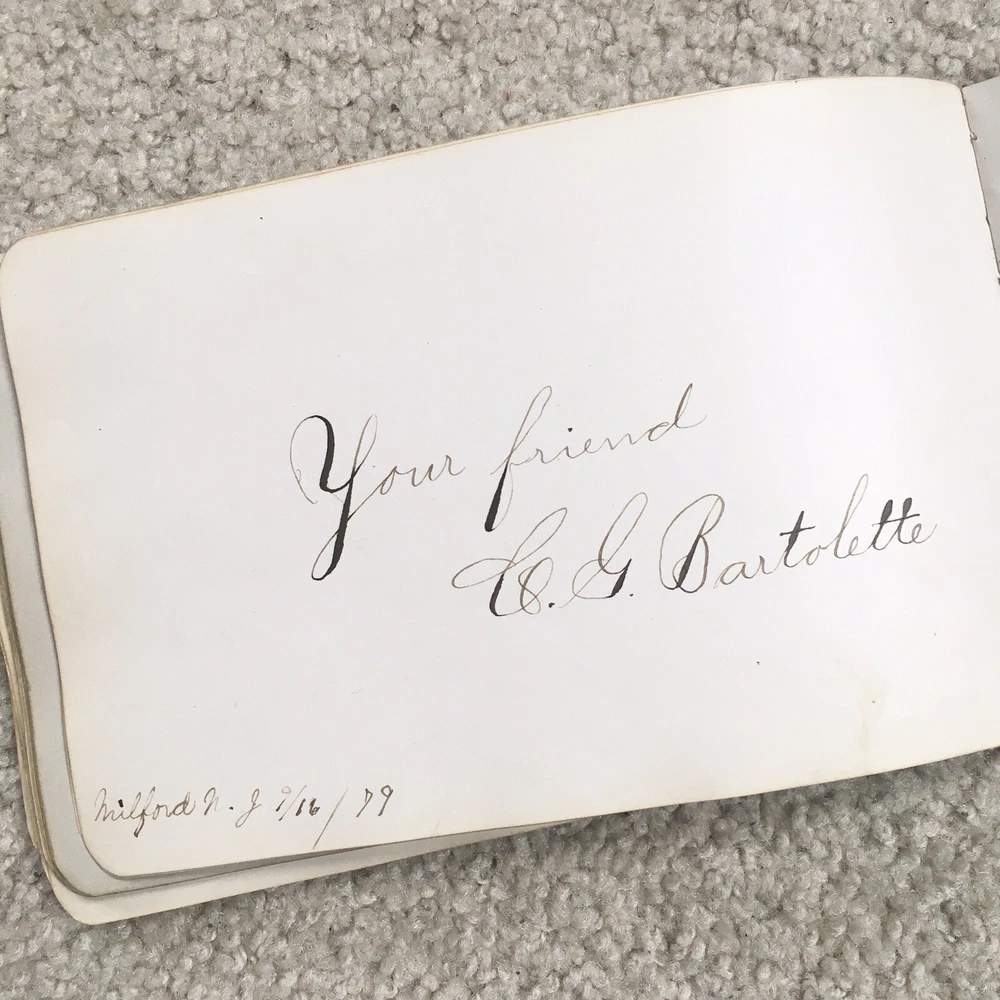 Your friend
C. G. Bartolette
Milford N. J 9/16/79